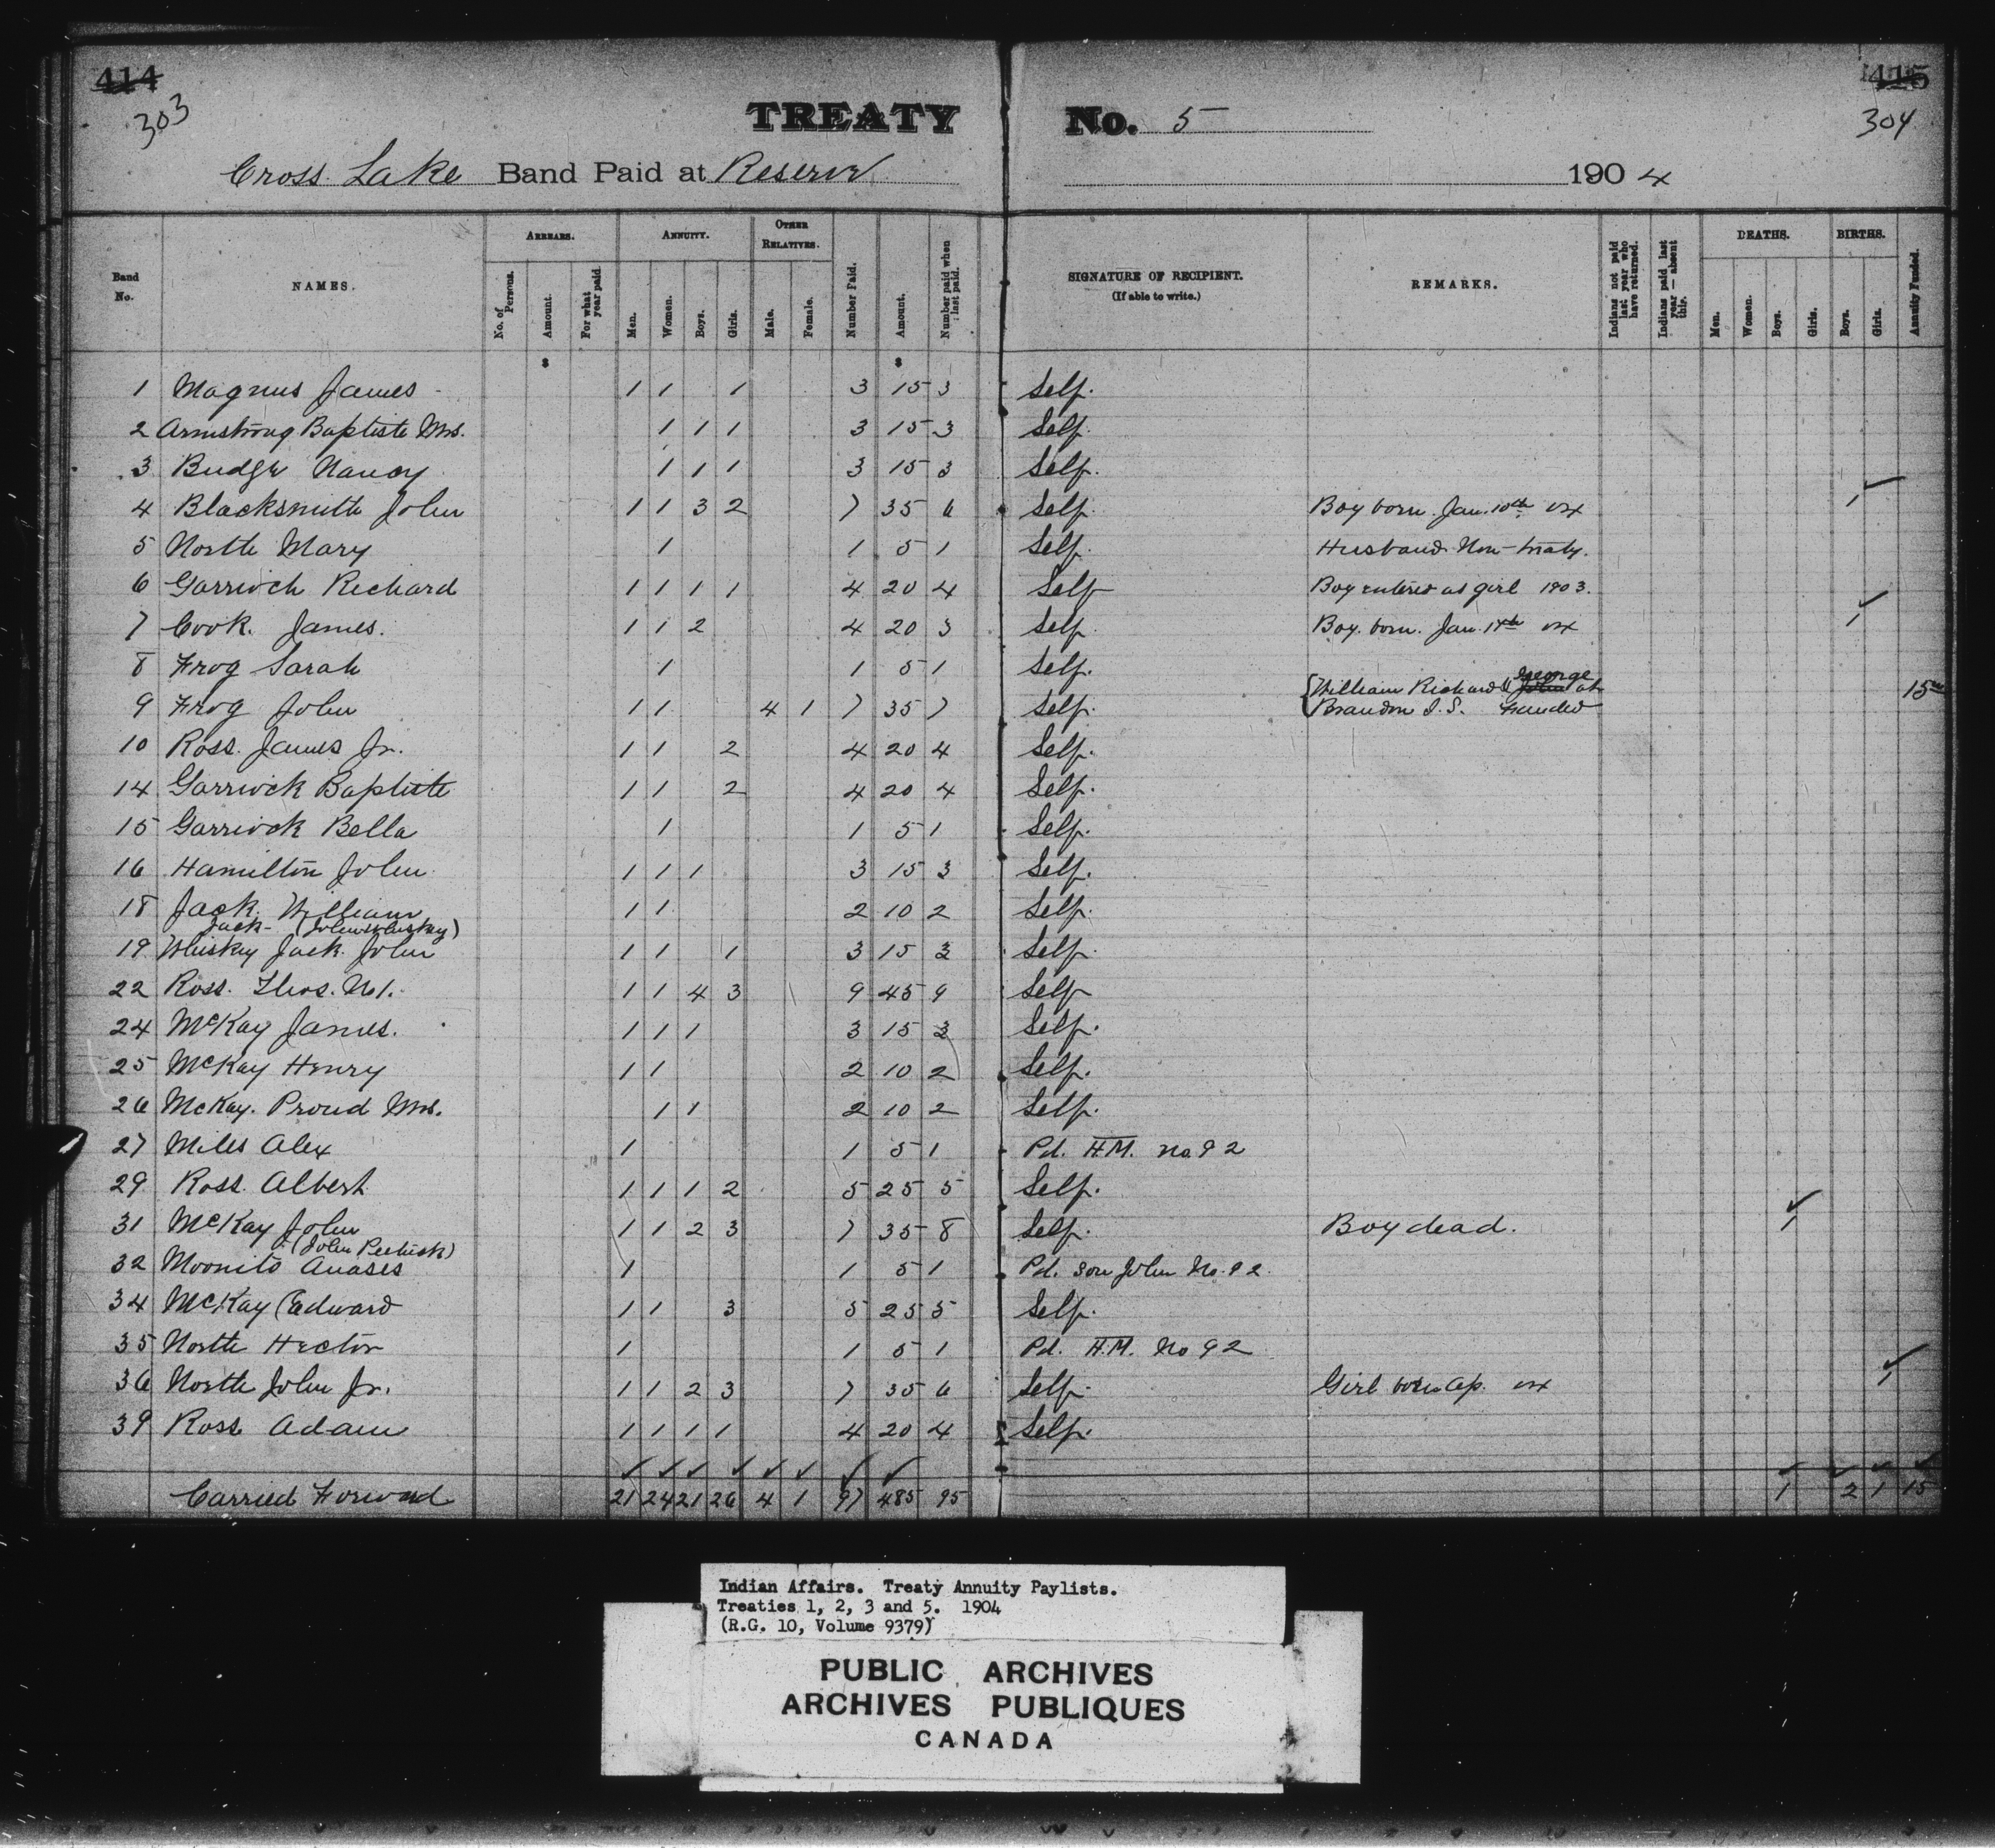 414 415
303 304
TREATY No. 5
Cross Lake Band Paid at Reserve 1904
Band No. NAMES. ARREARS. No. of Persons. Amount. For what year paid. ANNUITY. Men. Women. Boys. Girls. OTHER RELATIVES. Male. Female. Number Paid. Amount. Number paid when last paid. SIGNATURE OF RECIPIENT. (If able to write.) REMARKS. Indians not paid last year who have returned. Indians paid last year — absent this. DEATHS. Men. Women. Boys. Girls. BIRTHS. Boys. Girls. Annuity Funded.
$ $
1 Magnus James 1 1 1 3 15 3 Self.
2 Armstrong Baptiste Mrs. 1 1 1 3 15 3 Self.
3 Budge Nancy 1 1 1 3 15 3 Self.
4 Blacksmith John 1 1 3 2 7 35 6 Self. Boy born Jan. 10th 1
5 North Mary 1 1 5 1 Self. Husband Non-treaty.
6 Garrioch Richard 1 1 1 1 4 20 4 Self Boy entered as girl 1903.
7 Cook. James. 1 1 2 4 20 3 Self. Boy. born. Jan. 1
8 Frog Sarah 1 1 5 1 Self.
9 Frog John 1 1 4 1 7 35 7 Self. William Richard & John George at Brandon I.S. Funded 15
10 Ross. James Jr. 1 1 2 4 20 4 Self.
14 Garriock Baptiste 1 1 2 4 20 4 Self.
15 Garriock Bella 1 1 5 1 Self.
16 Hamilton John 1 1 1 3 15 3 Self.
18 Jack. William 1 1 2 10 2 Self.
Jack- (John Whiskey)
19 Whiskey Jack John 1 1 1 3 15 3 Self.
22 Ross. Thos. No 1. 1 1 4 3 9 45 9 Self
24 McKay James. 1 1 1 3 15 3 Self.
25 McKay Henry 1 1 2 10 2 Self.
26 McKay. Proud Mrs. 1 1 2 10 2 Self.
27 Miles Alex 1 1 5 1 Pd. H.M. no. 92
29 Ross. Albert 1 1 1 2 5 25 5 Self.
31 McKay John 1 1 2 3 7 35 8 Self. Boy dead. 1
32 Moonito Anases 1 1 5 1 Pd. son John No. 92.
34 McKay Edward 1 1 3 5 25 5 Self.
35 North Hector 1 1 5 1 Pd. H.M. No 92
36 North John Jr. 1 1 2 3 7 35 6 Self. Girl born Ap. 1
39 Ross Adam 1 1 1 1 4 20 4 Self.
Carried Forward 21 24 21 26 4 1 97 485 95 1 2 1 15
Indian Affairs. Treaty Annuity Paylists.
Treaties 1, 2, 3 and 5. 1904
(R.G. 10, Volume 9379)
PUBLIC ARCHIVES
ARCHIVES PUBLIQUES
CANADA